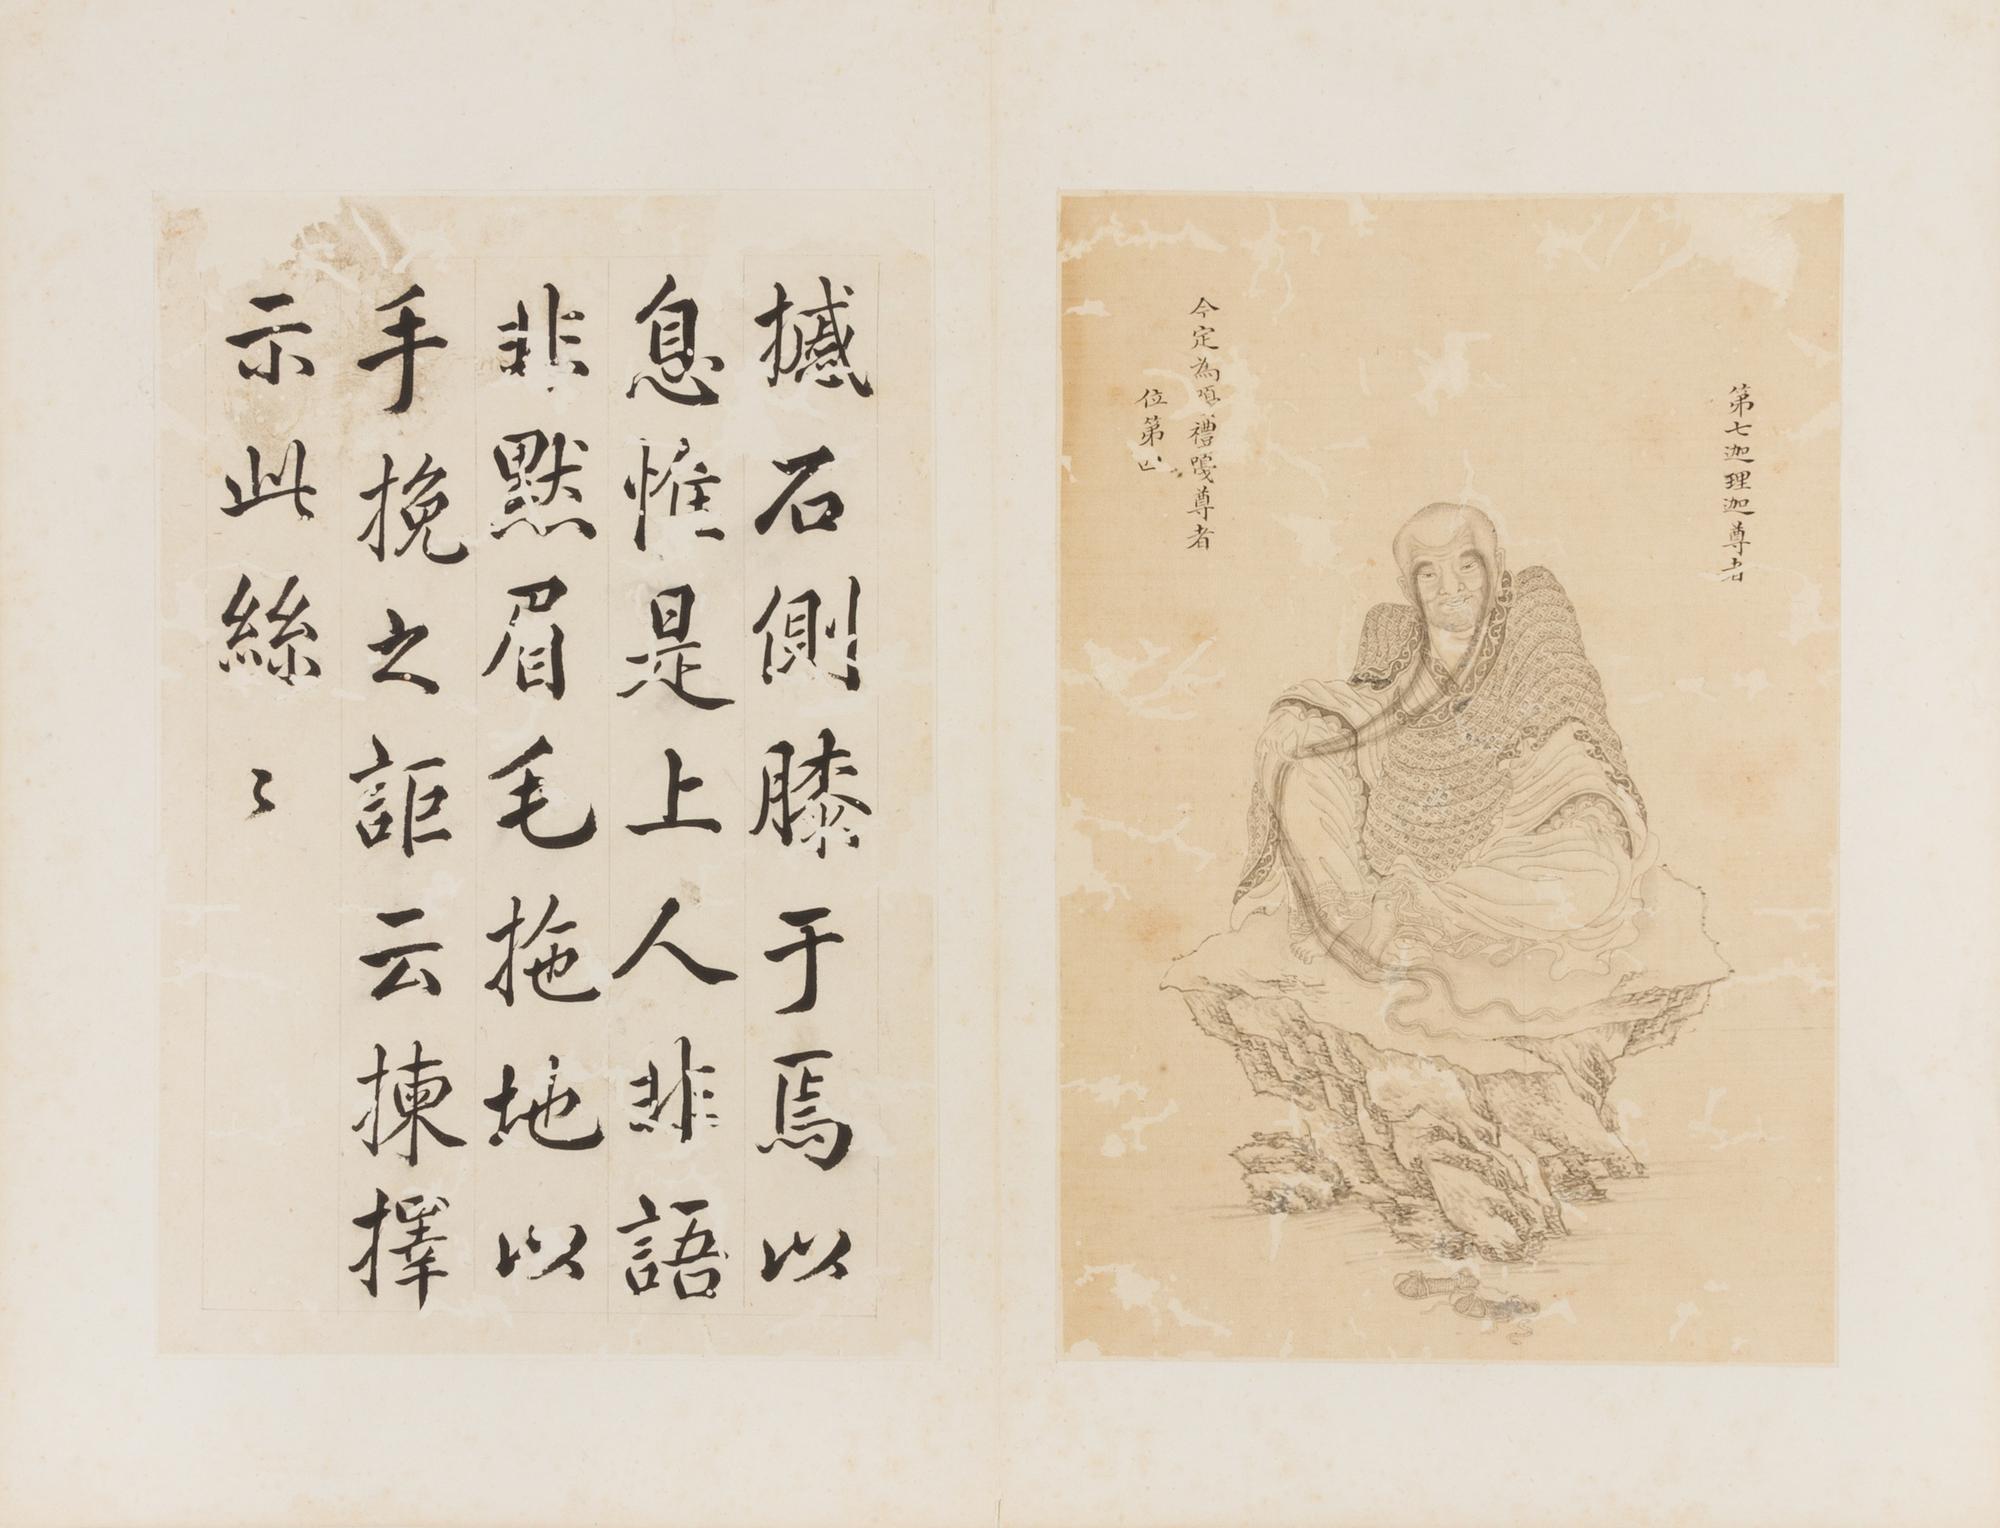 第七迦理迦尊者
今定為禮嘎尊者
位第
撼石側膝于焉以
息惟是上人非語
非默眉毛拖地以
手挽之詎云揀擇
示此絲〻